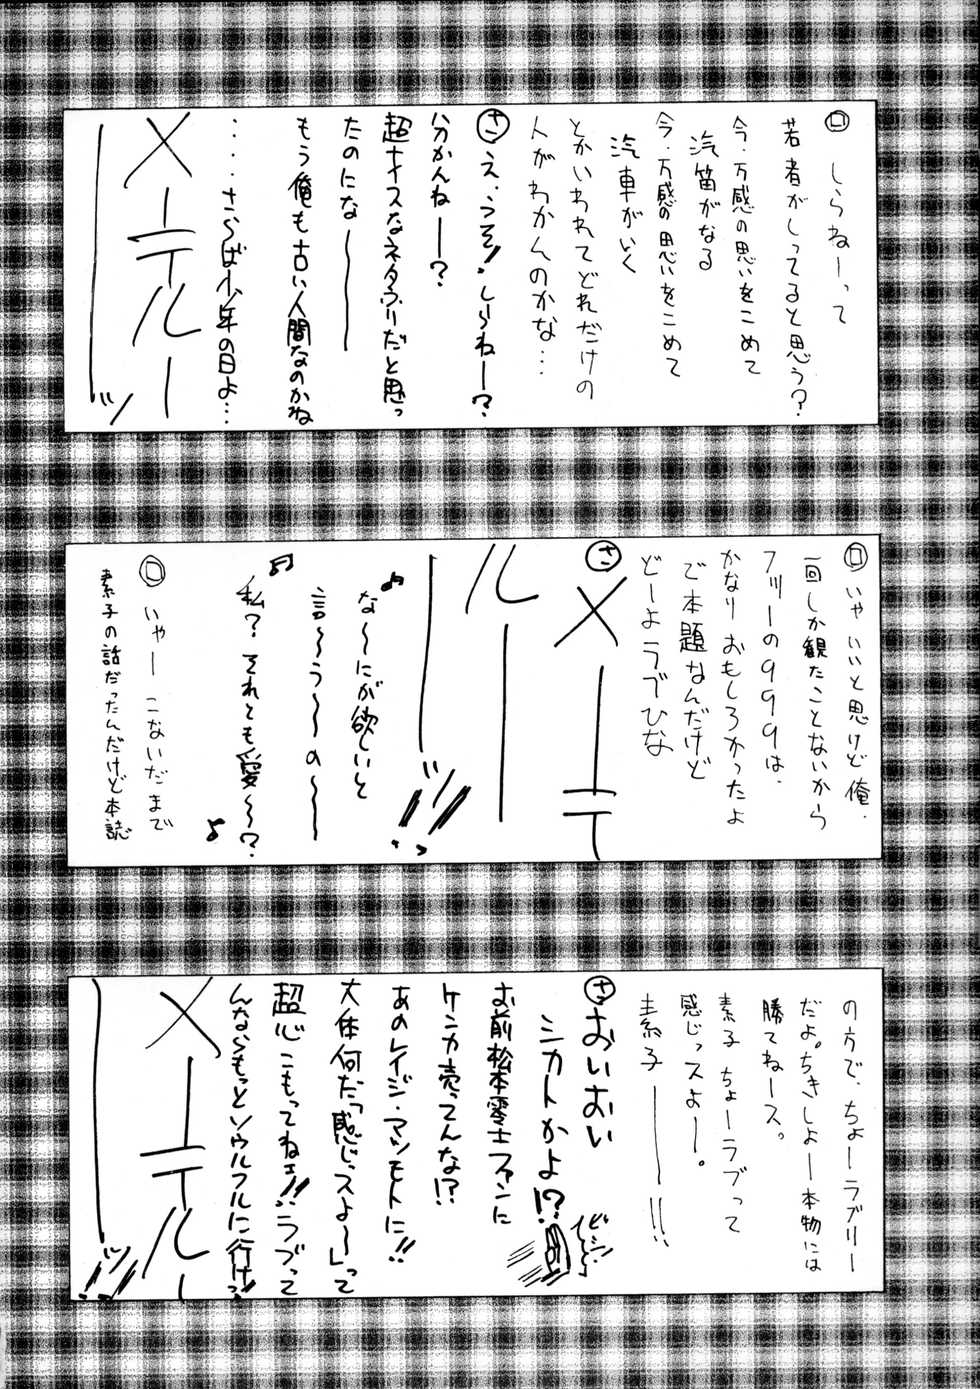 ロ しらねーって
若者がしってると思う?
今・万感の思いをこめて
汽笛がなる
今・万感の思いをこめて
汽車がいく
とかいわれてどれだけの
人がわかんのかな…
さ え、うそ!しらねー?
分かんねー?
超ナイスなネタふりだと思っ
たのになーー
もう俺も古い人間なのかね
・・・・さらば少年の日よ…
メーテルー
ーッ
ロ いやいいと思けど俺、
一回しか観たことないから
フツーの999は、
かなりおもしろかったよ
で本題なんだけど
どーよラブひな
さ メーテ
ルー
ーッ!!
な〜にが欲しいと
言〜う〜の〜
私?それとも愛〜?
ロ いやー こないだまで
素子の話だったんだけど本誌
の方で、ちょーラブリー
だよ。ちきしょー本物には
勝てねース。
素子ちょーラブって
感じっスよー。
素子ーー!!
さ おいおい
シカトかよ!?
ビシィ
お前松本零士ファンに
ケンカ売ってんな!?
あのレイジ・マツモトに!!
大体何だっ「感じっスよ〜」って
超心こもってねェ!!ラブって
んならもっとソウルフルに行けっ!!
メーテルー
ーッ!!